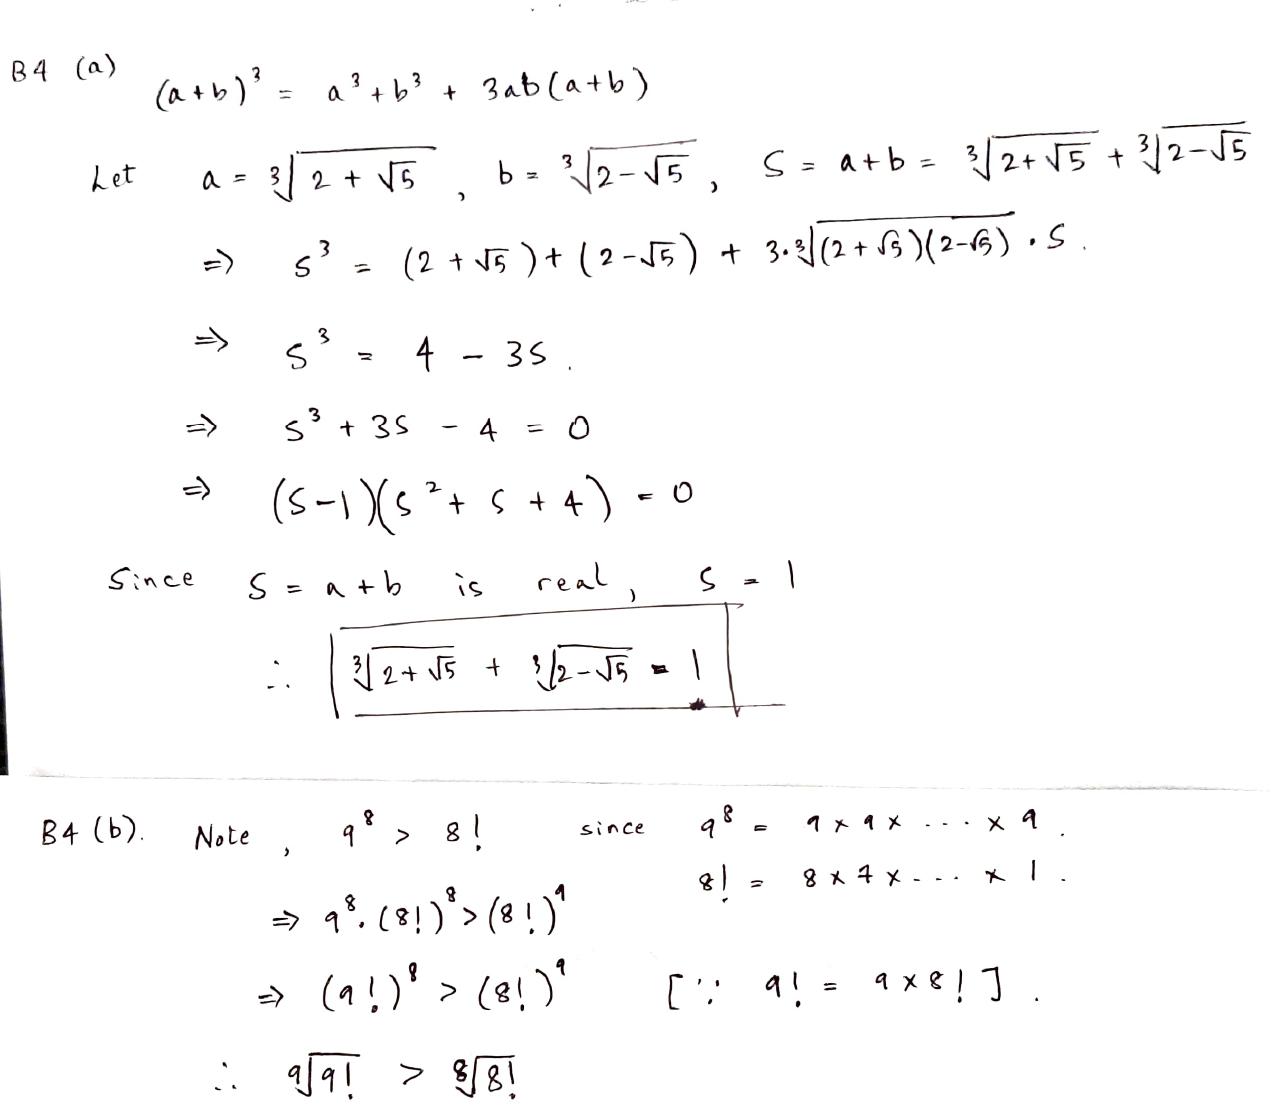 B4 (a)
(a+b)³ = a³ + b³ + 3ab(a+b)
Let a = ∛(2+√5), b = ∛(2-√5), S = a+b = ∛(2+√5) + ∛(2-√5)
⇒ S³ = (2+√5) + (2-√5) + 3.∛((2+√5)(2-√5)) . S.
⇒ S³ = 4 - 3S.
⇒ S³ + 3S - 4 = 0
⇒ (S-1)(S² + S + 4) = 0
Since S = a+b is real, S = 1
∴ ∛(2+√5) + ∛(2-√5) = 1
B4 (b). Note, 9⁸ > 8! since 9⁸ = 9 × 9 × ... × 9.
8! = 8 × 7 × ... × 1.
⇒ 9⁸.(8!)⁸ > (8!)⁹
⇒ (9!)⁸ > (8!)⁹ [∵ 9! = 9 × 8!].
∴ ⁹√9! > ⁸√8!